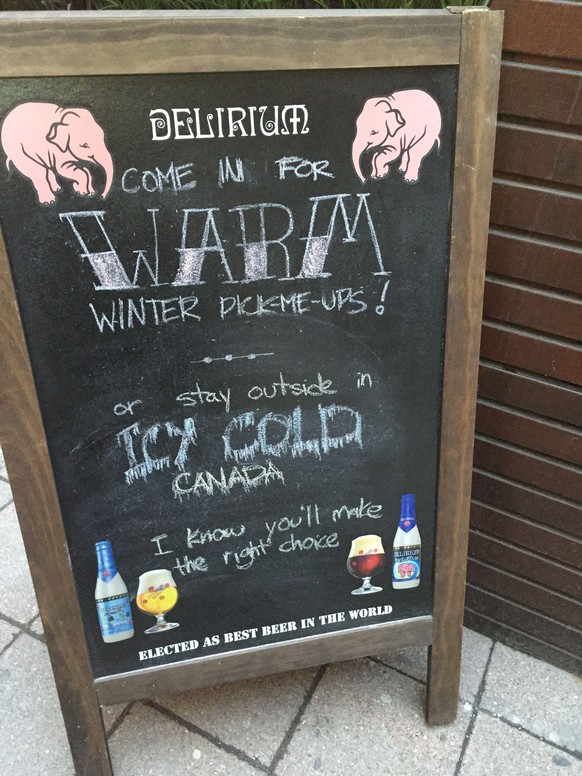 DELIRIUM
COME IN FOR
WARM
WINTER PICK-ME-UPS!
or stay outside in
ICY COLD
CANADA
I know you'll make
the right choice
DELIRIUM
ELECTED AS BEST BEER IN THE WORLD